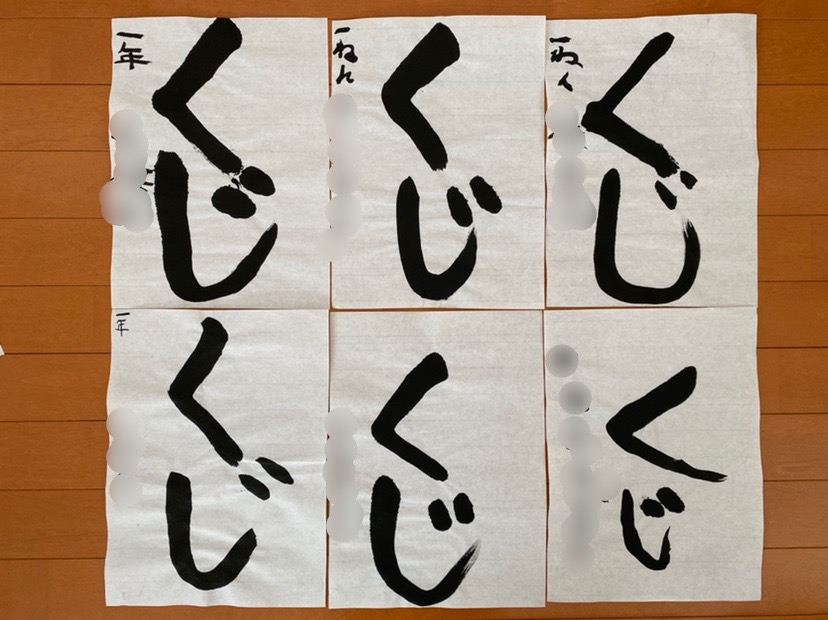 くじ
一年
くじ
一ねん
くじ
一ねん
くじ
一年
くじ
くじ